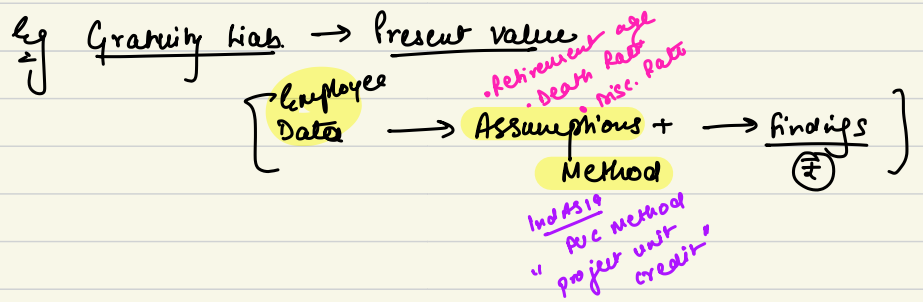 Eg Gratuity Liab. → Present value
2
. Retirement age
. Death Rate
. Disc. Rate
[ Employee Data → Assumptions + Method → findings ]
₹
Ind AS 19
PUC Method
" project unit credit "